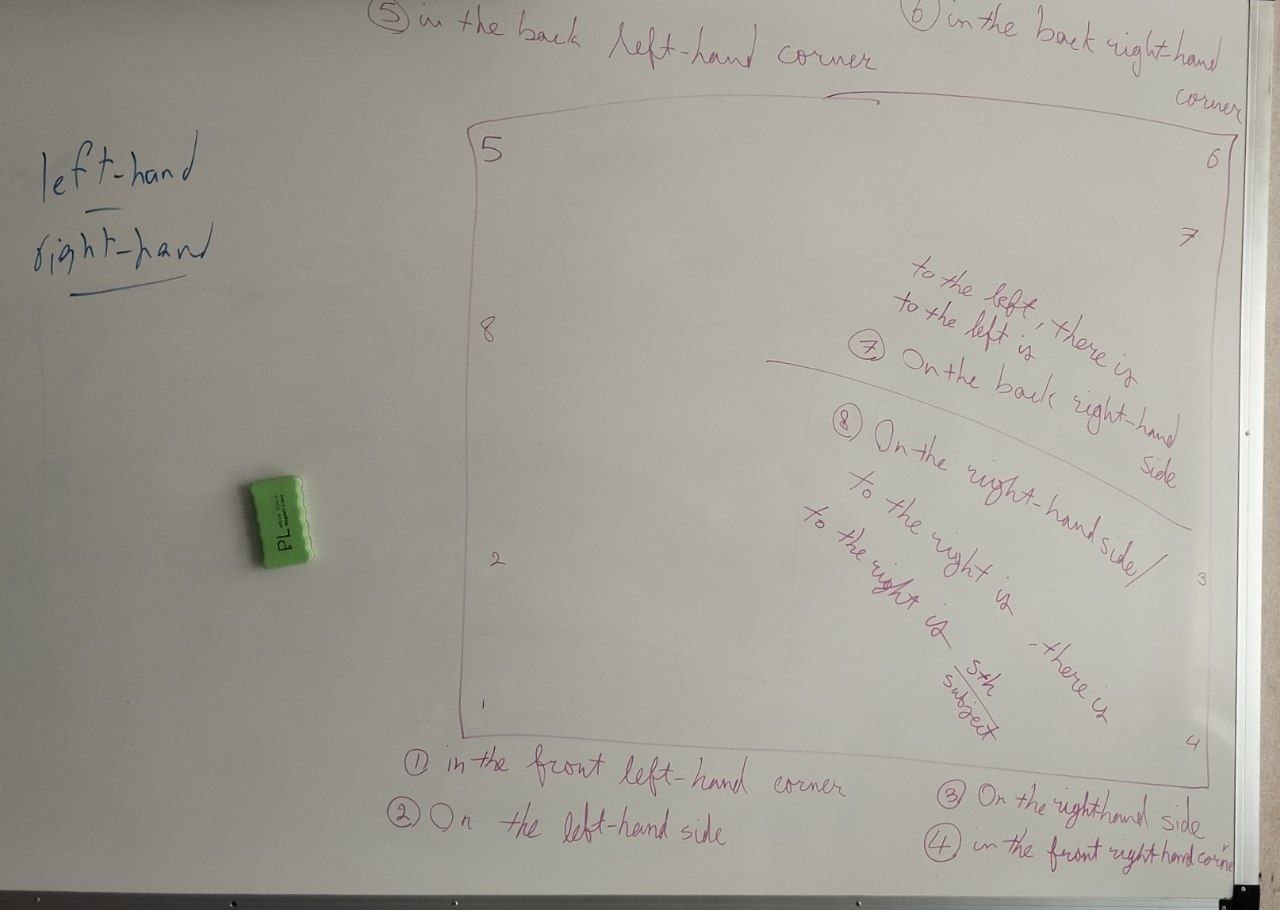 ⑤ in the back left-hand corner
⑥ in the back right-hand
corner
left-hand
right-hand
5
6
7
8
2
1
3
4
to the left, there is
to the left is
⑦ On the back right-hand
side
⑧ On the right-hand side/
to the right is - there is
to the right is sth
subject
① in the front left-hand corner
② On the left-hand side
③ On the righthand side
④ in the front right-hand corne
PL